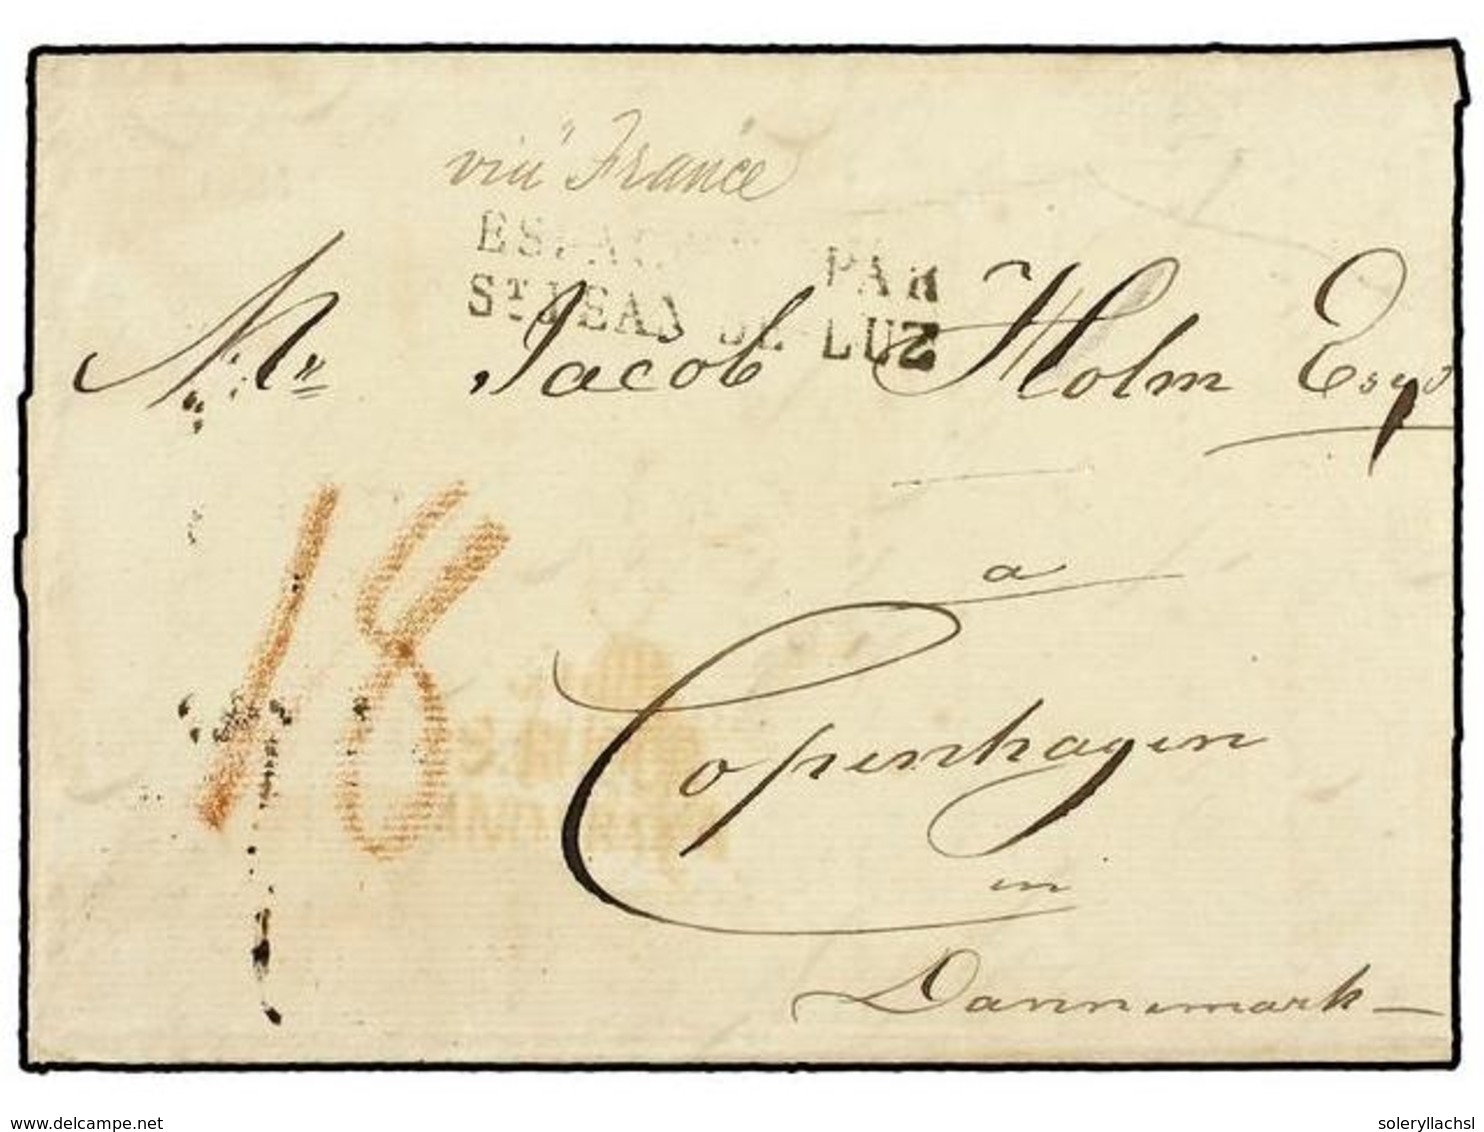 via France
PAR
ST JEAN DE LUZ
Mr Jacob Holm Esqr
18
a
Copenhagen
in
Dannemark
delcampe.net
soleryllachsl